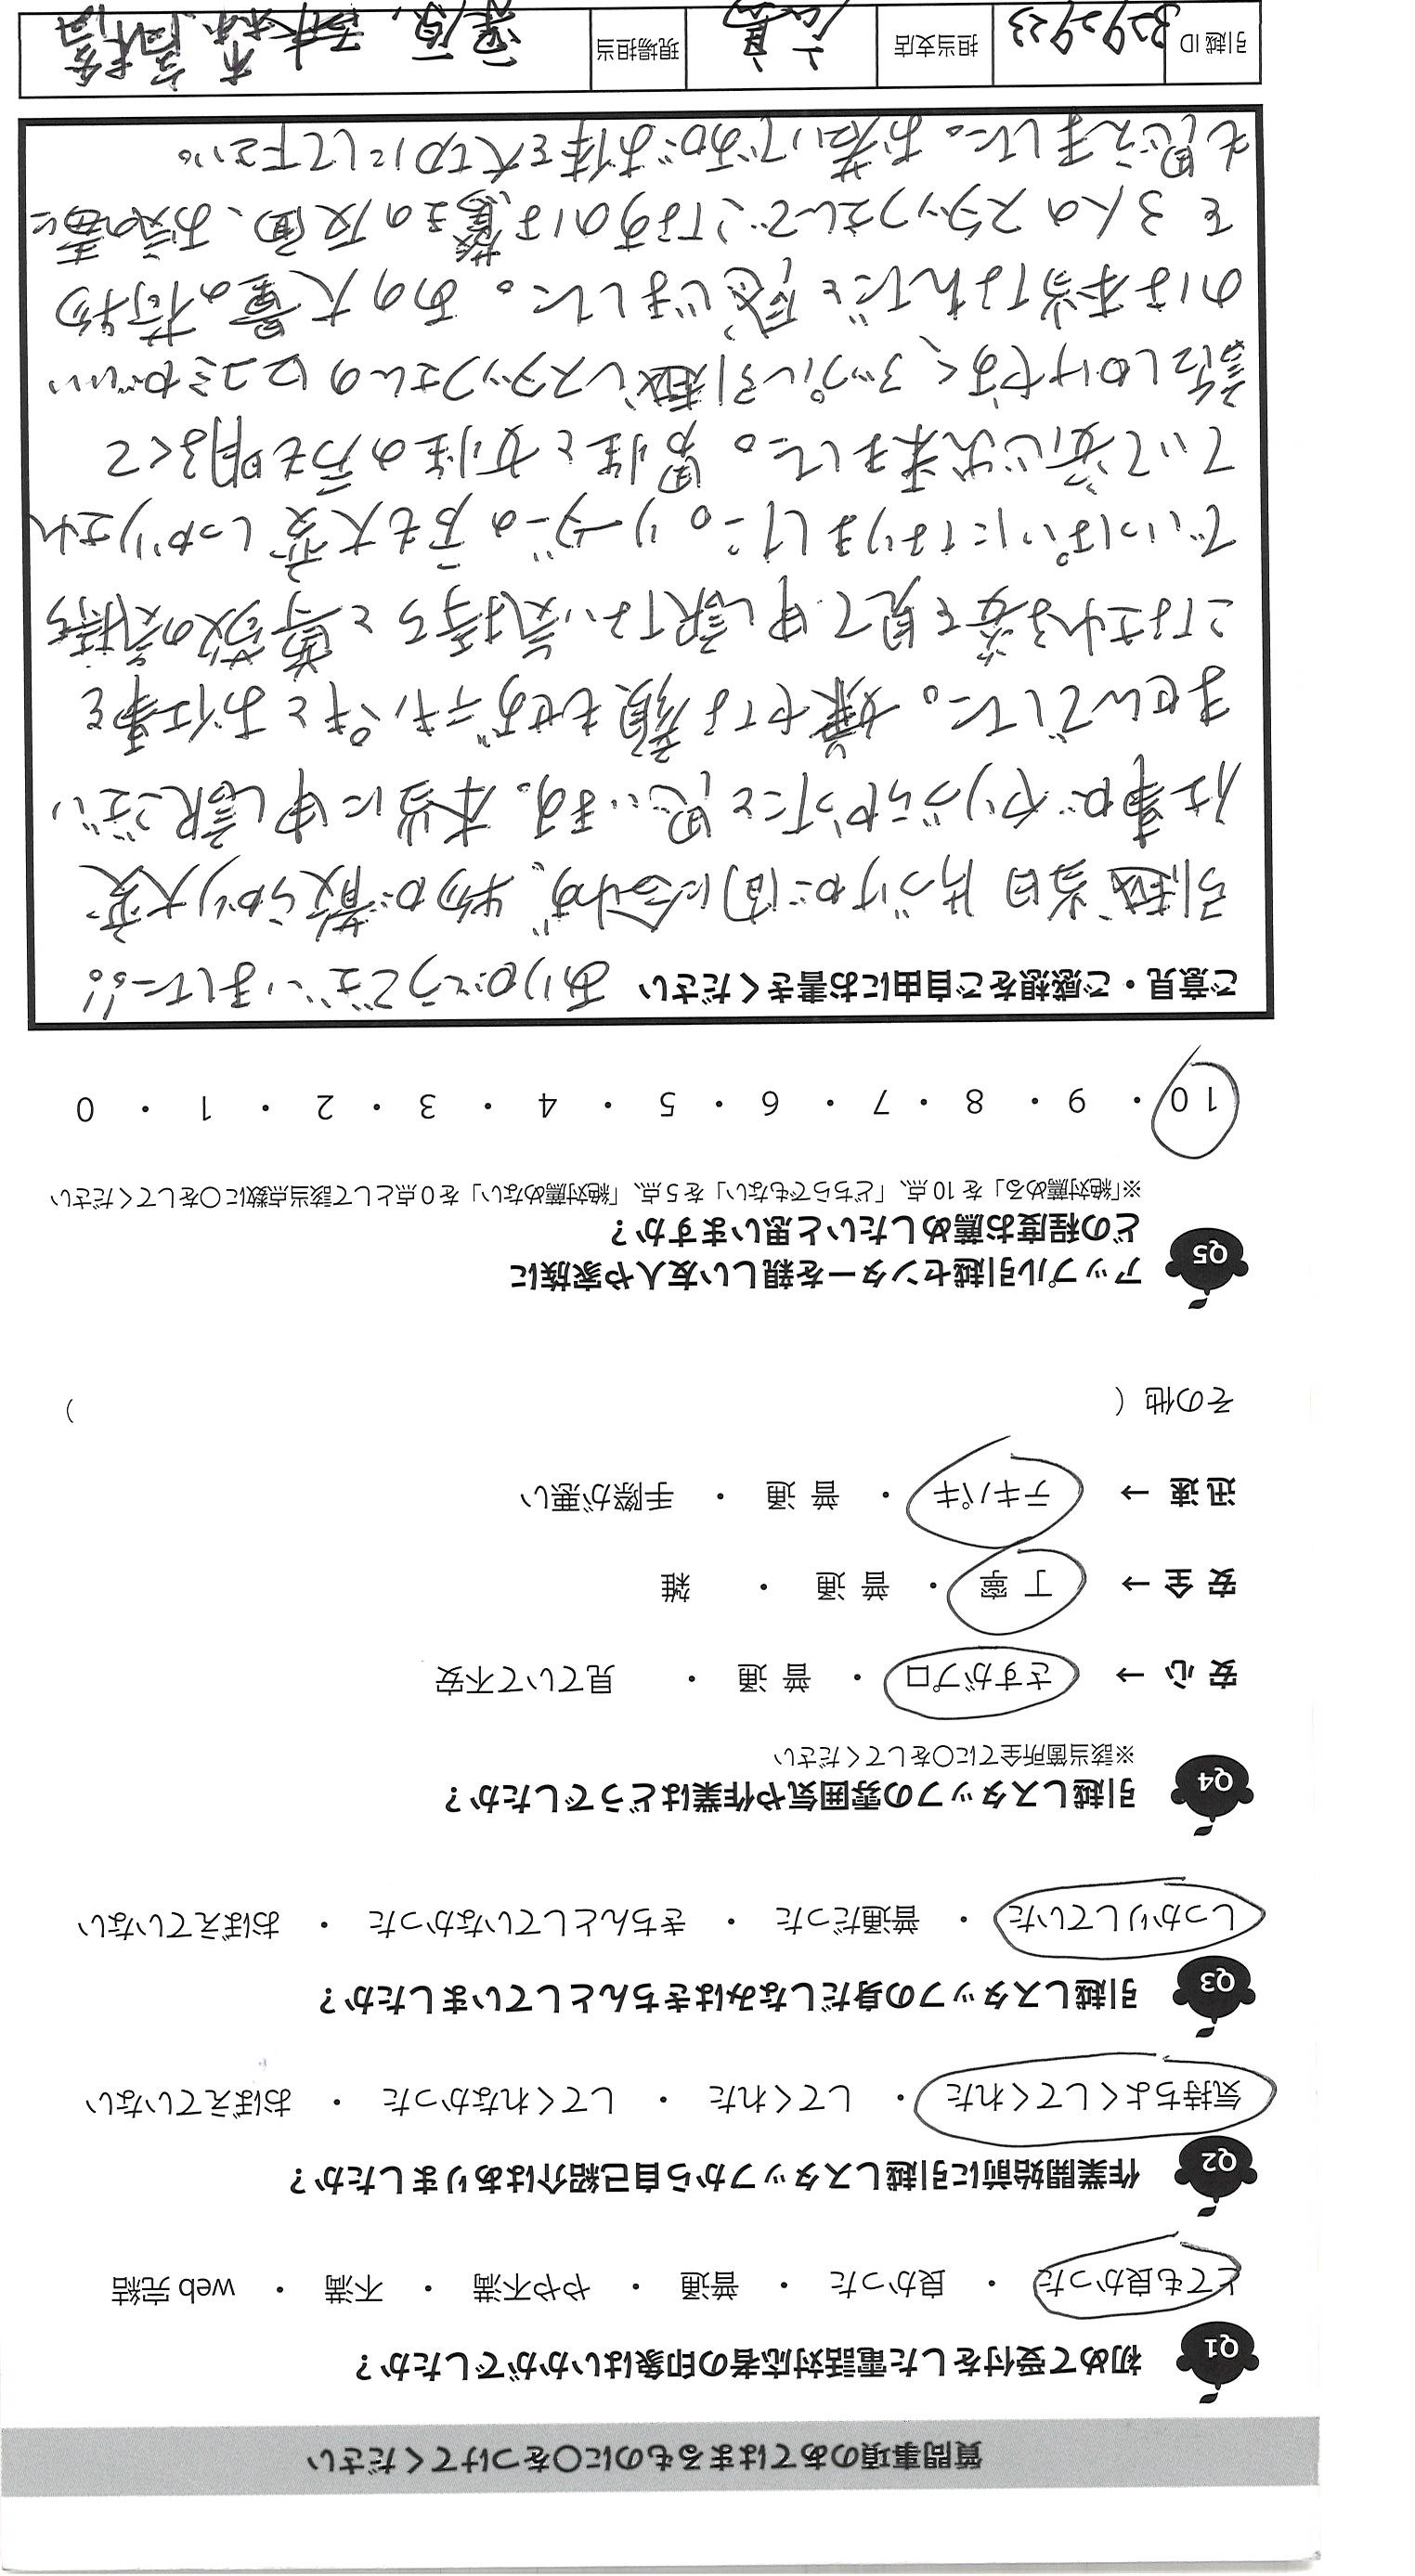 質問事項のあてはまるものに〇をつけてください
Q1 初めて受付をした電話対応者の印象はいかがでしたか?
とても良かった ・ 良かった ・ 普通 ・ やや不満 ・ 不満 ・ web完結
Q2 作業開始前に引越しスタッフから自己紹介はありましたか?
気持ちよくしてくれた ・ してくれた ・ してくれなかった ・ おぼえていない
Q3 引越しスタッフの身だしなみはきちんとしていましたか?
しっかりしていた ・ 普通だった ・ きちんとしていなかった ・ おぼえていない
Q4 引越しスタッフの雰囲気や作業はどうでしたか?
※該当箇所全てに〇をしてください
安心 → さすがプロ ・ 普通 ・ 見ていて不安
安全 → 丁寧 ・ 普通 ・ 雑
迅速 → テキパキ ・ 普通 ・ 手際が悪い
その他 ( )
Q5 アップル引越センターを親しい友人や家族に
どの程度お薦めしたいと思いますか?
※「絶対薦める」を10点、「どちらでもない」を5点、「絶対薦めない」を0点として該当点数に〇をしてください
10 ・ 9 ・ 8 ・ 7 ・ 6 ・ 5 ・ 4 ・ 3 ・ 2 ・ 1 ・ 0
ご意見・ご感想をご自由にお書きください ありがとうございました!!
引越当日片づけが間に合わず、物が散らかり大変
仕事がやりづらかったと思います。本当に申し訳ござい
ませんでした。嫌な顔もせずテキパキとお仕事を
こなされる姿を見て申し訳ない気持ちと尊敬の気持ち
でいっぱいになりました。リーダーの方も大変しっかりされ
ていて安心出来ました。男性と女性の方も明るくて
話しかけやすく、アップル引越しスタッフさんの口コミがいい
のは本当なんだと感じました。あの大量の荷物
を3人のスタッフさんでこなすのは驚きの反面、お気の毒に
も思えました。お若いですがお体を大切にして下さい。
引越ID 3292923 担当支店 現場担当